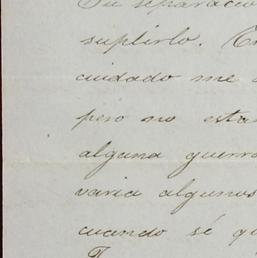 Tu separació
suplirlo. 
cuidado me
pero no esta
alguna guerra
varia algunos
cuando sé qu